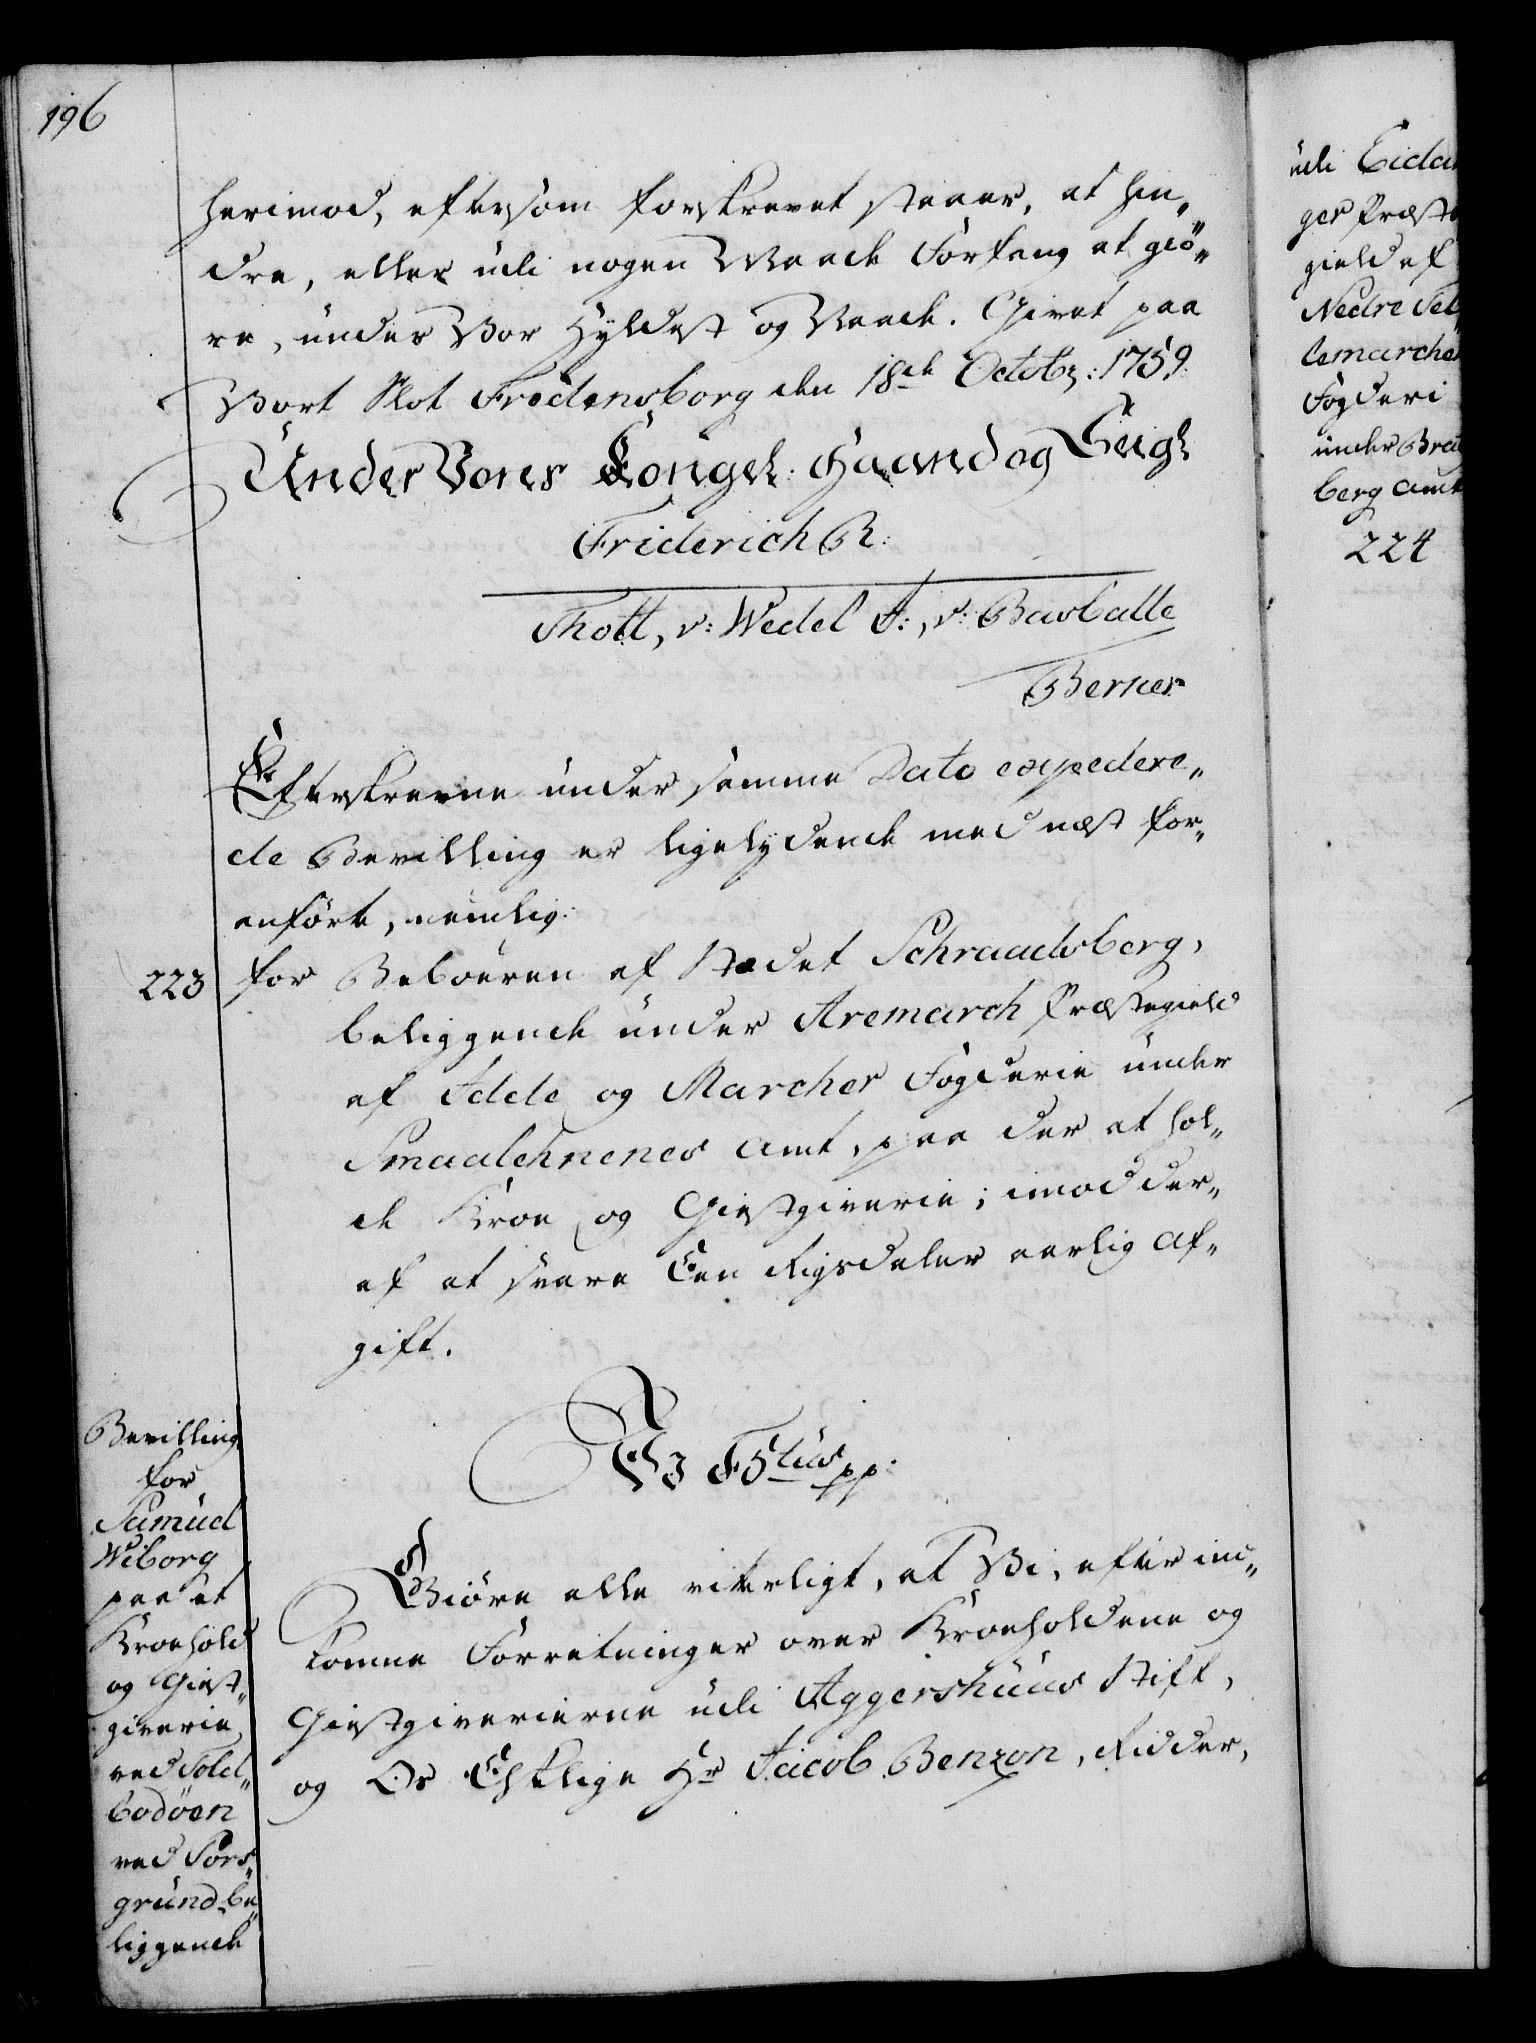 196
herimod, eftersom forskrevet staaer, at hin„
dre, eller udi nogen Maade Forfang at giö„
re, under Vor Hyldest og Naade. Givet paa
Vort Slot Fredensborg den 18de Octobr: 1759.
Under Vores Kongel: Haand og Seigl
Friderich R:
Thott, v: Wedel F:, v: Barballe
Berner
Efterskrevne under samme Dato expedere„
de Bevilling er ligelydende med næst for„
anförte, nemlig:
223 for Beboeren af Stædet Schraadsberg,
beliggende under Aremarch Præstegield
af Idde og Marcher Fogderie under
Smaalehnenes Amt, paa der at hol„
de Kroe og Giestgiverie; imod der„
af at svare Een Rigsdaler aarlig Af„
gift.
F5tus pp:
Giöre alle vitterligt, at Vi, efter ind„
komne Forretninger over Kroeholdene og
Giestgivererierne udi Aggershuus Stift,
og Os Elskelige Hr Jacob Benzon, Ridder,
Bevilling
for
Samuel
Wiborg
paa et
Kroehold
og Giest„
giverie
ved Told„
bodöen
ved Pors„
grund be„
liggende
udi Eidan
ger Præste
gield af
Nedre Tel„
lemarchen
Fogderi
under Brat
berg Amt
224